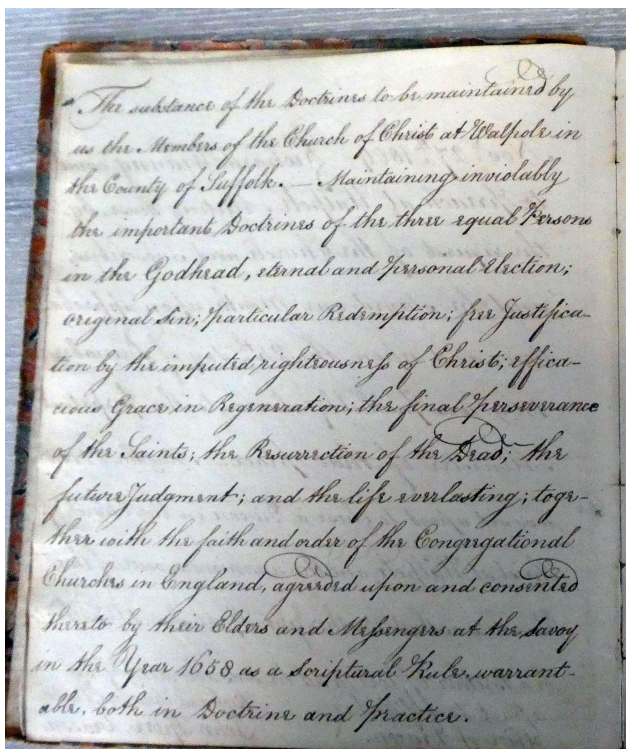 The substance of the Doctrines to be maintained by
us the Members of the Church of Christ at Walpole in
the County of Suffolk. — Maintaining inviolably
the important Doctrines of the three equal Persons
in the Godhead, eternal and personal Election;
original Sin; particular Redemption; free Justifica-
tion by the imputed righteousneſs of Christ; effica-
cious Grace in Regeneration; the final perseverance
of the Saints; the Resurrection of the Dead; the
future Judgment; and the life everlasting; toge-
ther with the faith and order of the Congregational
Churches in England, agreeded upon and consented
thereto by their Elders and Meſsengers at the Savoy
in the Year 1658 as a Scriptural Rule warrant-
able, both in Doctrine and practice.